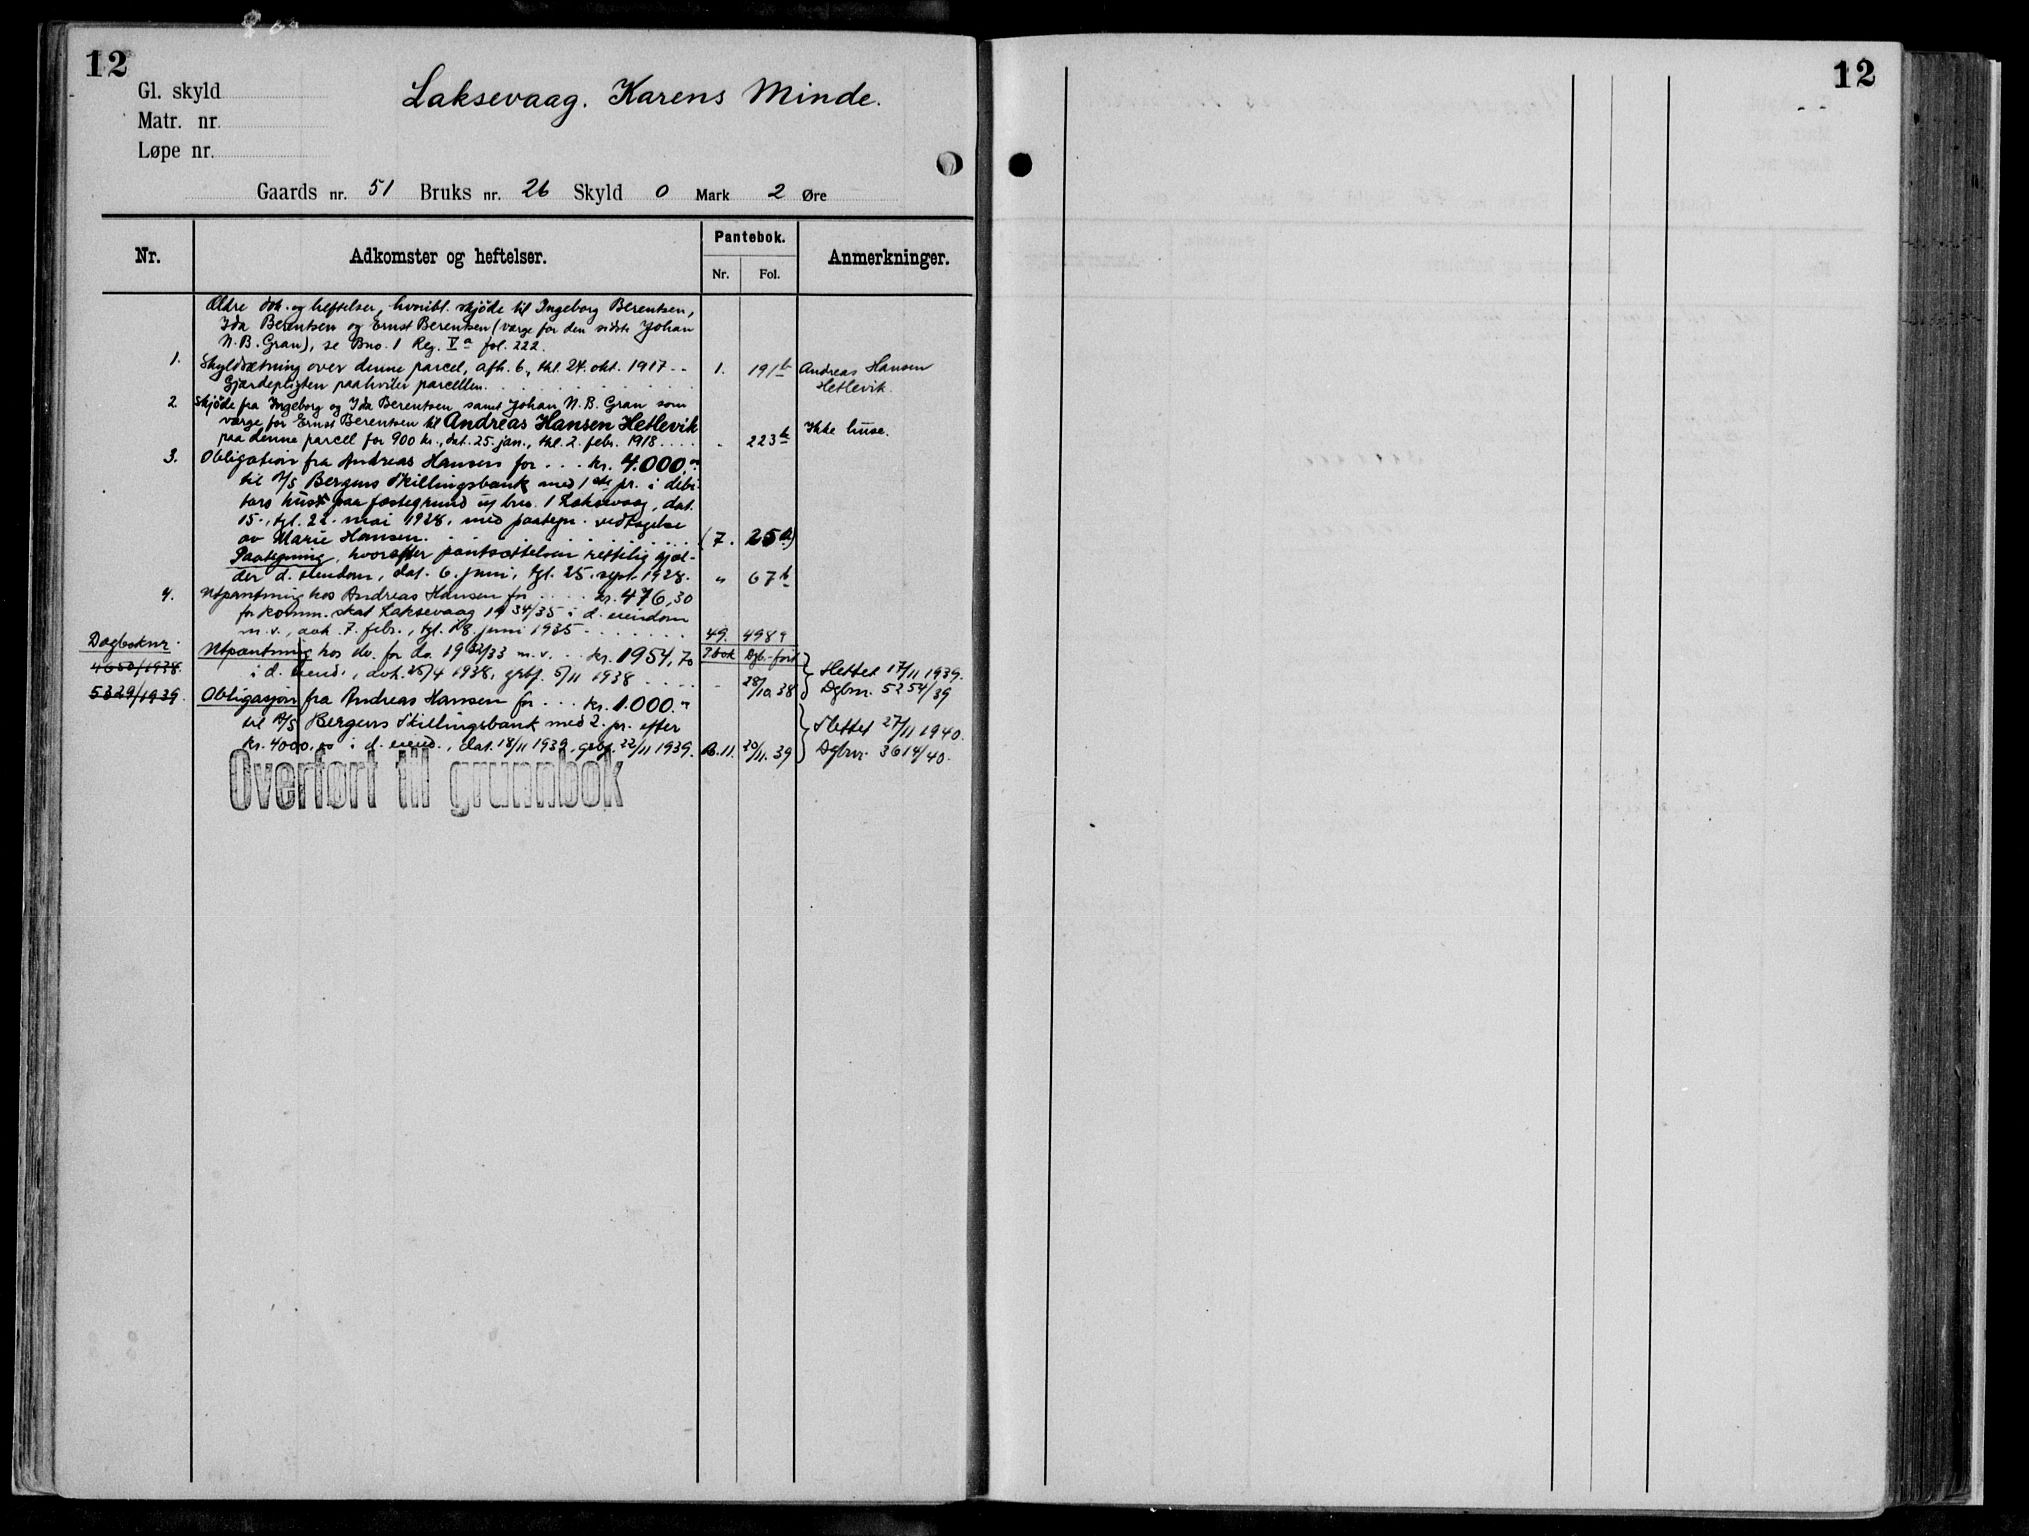 12
Gl. skyld
Matr. nr.
Løpe nr.
Laksevaag. Karens Minde.
Gaards nr. 51 Bruks nr. 26 Skyld 0 Mark 2 Øre
Nr. Adkomster og heftelser. Pantebok. Anmerkninger.
Nr. Fol.
Ældre dok. og heftelser, hvoribl. skjøde til Ingeborg Berentsen,
Ida Berentsen og Ernst Berentsen (værge for den sidste Johan
N. B. Gran), se Bno. 1 Reg. Va fol. 222.
1. Skyldsætning over denne parcel, afh. 6., thl. 24. okt. 1917 -- 1. 191b Andreas Hansen
Gjærdepligten paahviler parcellen. Hetlevik.
2 Skjøde fra Ingeborg og Ida Berentsen samt Johan N. B. Gran som
værge for Ernst Berentsen til Andreas Hansen Hetlevik Ikke huse.
paa denne parcel for 900 kr., dat. 25. jan., thl. 2. febr. 1918 .... " 223b
3. Obligation fra Andreas Hansen for ... kr. 4.000."
til A/S Bergens Skillingsbank med 1ste pr. i debi
tors hus paa fæstegrund u/ bno. 1 Laksevaag, dat.
15., tgl. 22. mai 1928, med paategn. vedtagelse
av Marie Hansen. (7. 25a)
Paategning, hvorefter pantsættelsen rettelig gjæl-
der d. eiendom, dat. 6. juni, tgl. 25. sept. 1928. " 67b
4. Utpantning hos Andreas Hansen for .... kr. 476,30
for komm. skat Laksevaag 1934/35 i d. eiendom
m. v., avh. 7. febr., tgl. 18. juni 1935 ....... 49. 498
Dagboknr.
4650/1938 Utpantning hos do. for do. 1932/33 m. v. .. kr. 1954,70 P.bok Dgb.-ført
i d. eiend., avh. 25/4 1938, grbf. 5/11 1938 .... - 28/10 38 Slettet 17/11 1939.
Dgbnr. 5254/39
5329/1939. Obligasjon fra Andreas Hansen for ... kr. 1.000."
til A/S Bergens Skillingsbank med 2. pr. efter
kr. 4000,00 i d. eiend., dat. 18/11 1939, grbf. 22/11 1939. B. 11. 20/11. 39 Slettet 27/11 1940.
Dgbnr. 3614/40.
Overført til grunnbok
12